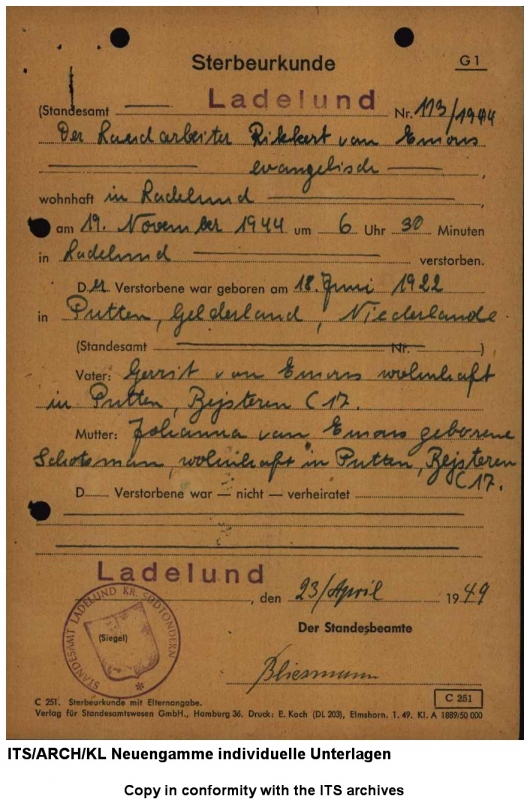 Sterbeurkunde
G 1
(Standesamt Ladelund Nr. 113/1944
Der Landarbeiter Rikkert van Emous
evangelisch
wohnhaft in Ladelund
am 19. November 1944 um 6 Uhr 30 Minuten
in Ladelund verstorben.
Der Verstorbene war geboren am 18. Juni 1922
in Putten, Gelderland, Niederlande
(Standesamt Nr. )
Vater: Gerrit van Emous wohnhaft
in Putten, Beysteren C 17.
Mutter: Johanna van Emous geborene
Schotsman, wohnhaft in Putten, Beysteren
C 17.
D Verstorbene war — nicht — verheiratet
Ladelund
, den 23/April 1949
Der Standesbeamte
(Siegel)
STANDESAMT LADELUND KR. SÜDTONDERN
C 251
C 251. Sterbeurkunde mit Elternangabe.
Verlag für Standesamtswesen GmbH., Hamburg 36. Druck: E. Koch (DL 203), Elmshorn. 1. 49. Kl. A 1889/50 000
ITS/ARCH/KL Neuengamme individuelle Unterlagen
Copy in conformity with the ITS archives